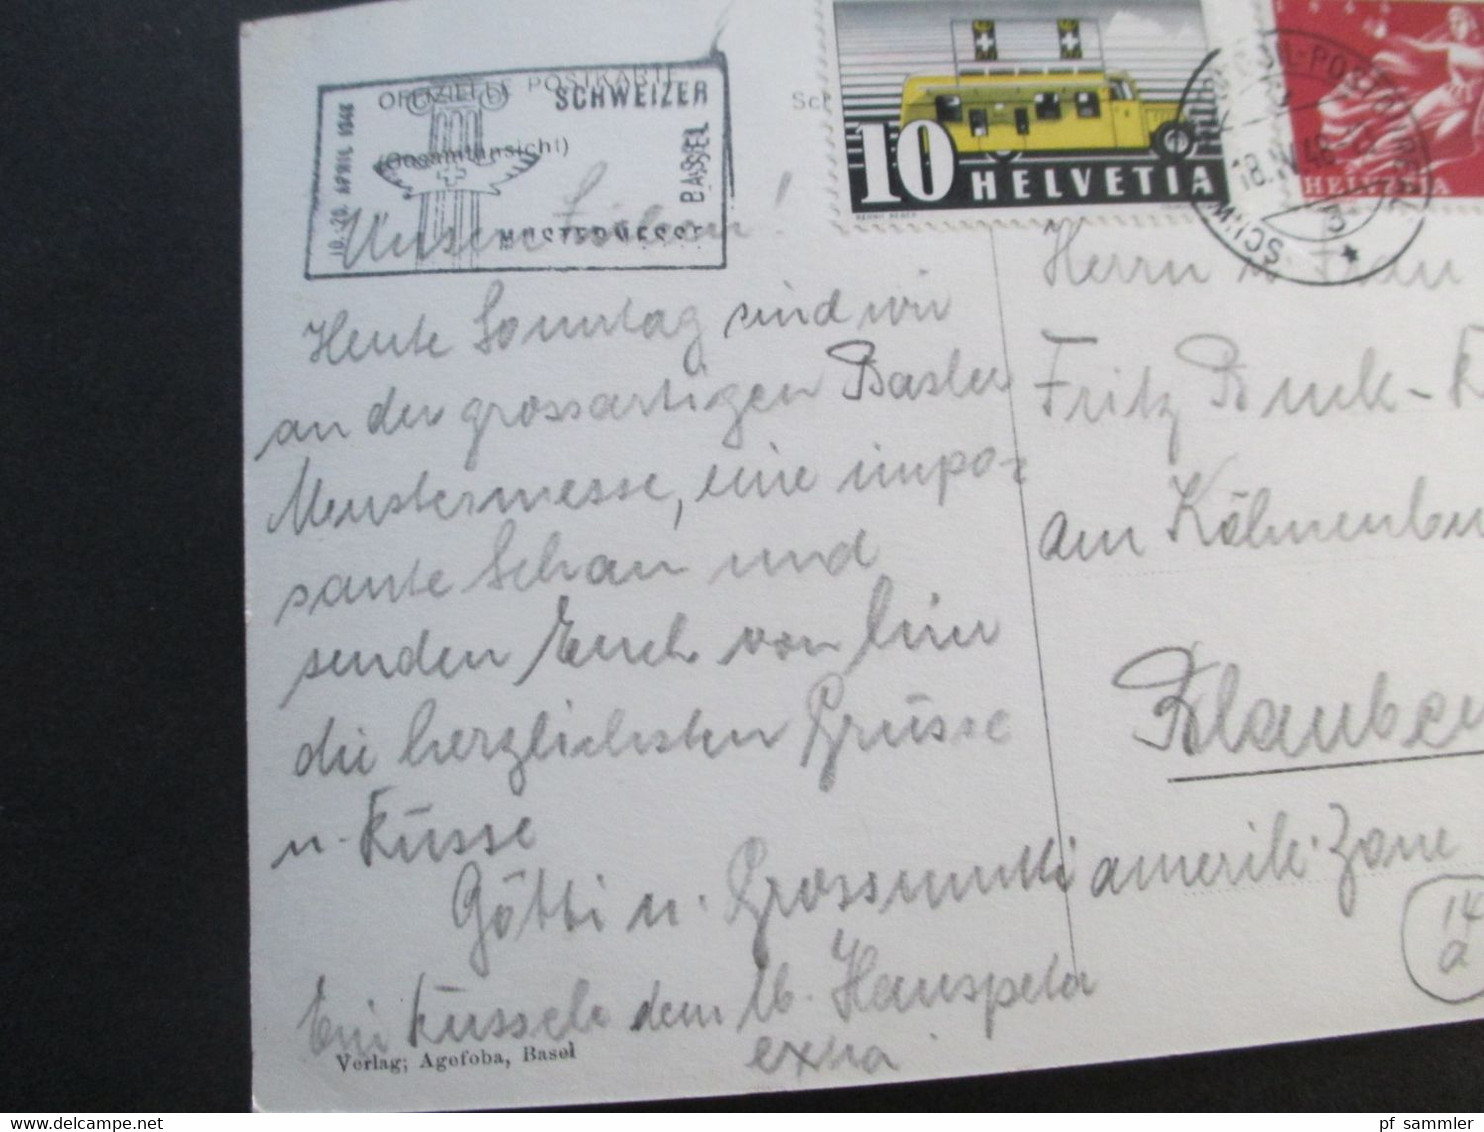 OFFIZIELLE POSTKARTE
SCHWEIZER
10.-20. APRIL 1948
(Gesamtansicht)
BASEL
MUSTERMESSE
Sch
10 HELVETIA
HELVETIA
18.IV.48
3
Unsere Lieben!
Heute Sonntag sind wir
an der grossartigen Basler
Mustermesse, eine impo-
sante Schau und
senden Euch von hier
die herzlichsten Grüsse
u. Küsse
Götti u. Grossmutti
Ein Küssele dem lb. Hanspeter
extra
Herrn u. Frau
Fritz Buck-
am
Blaubeu
amerik. Zone
14
a
Verlag; Agefoba, Basel
pf_sammler
www.delcampe.net